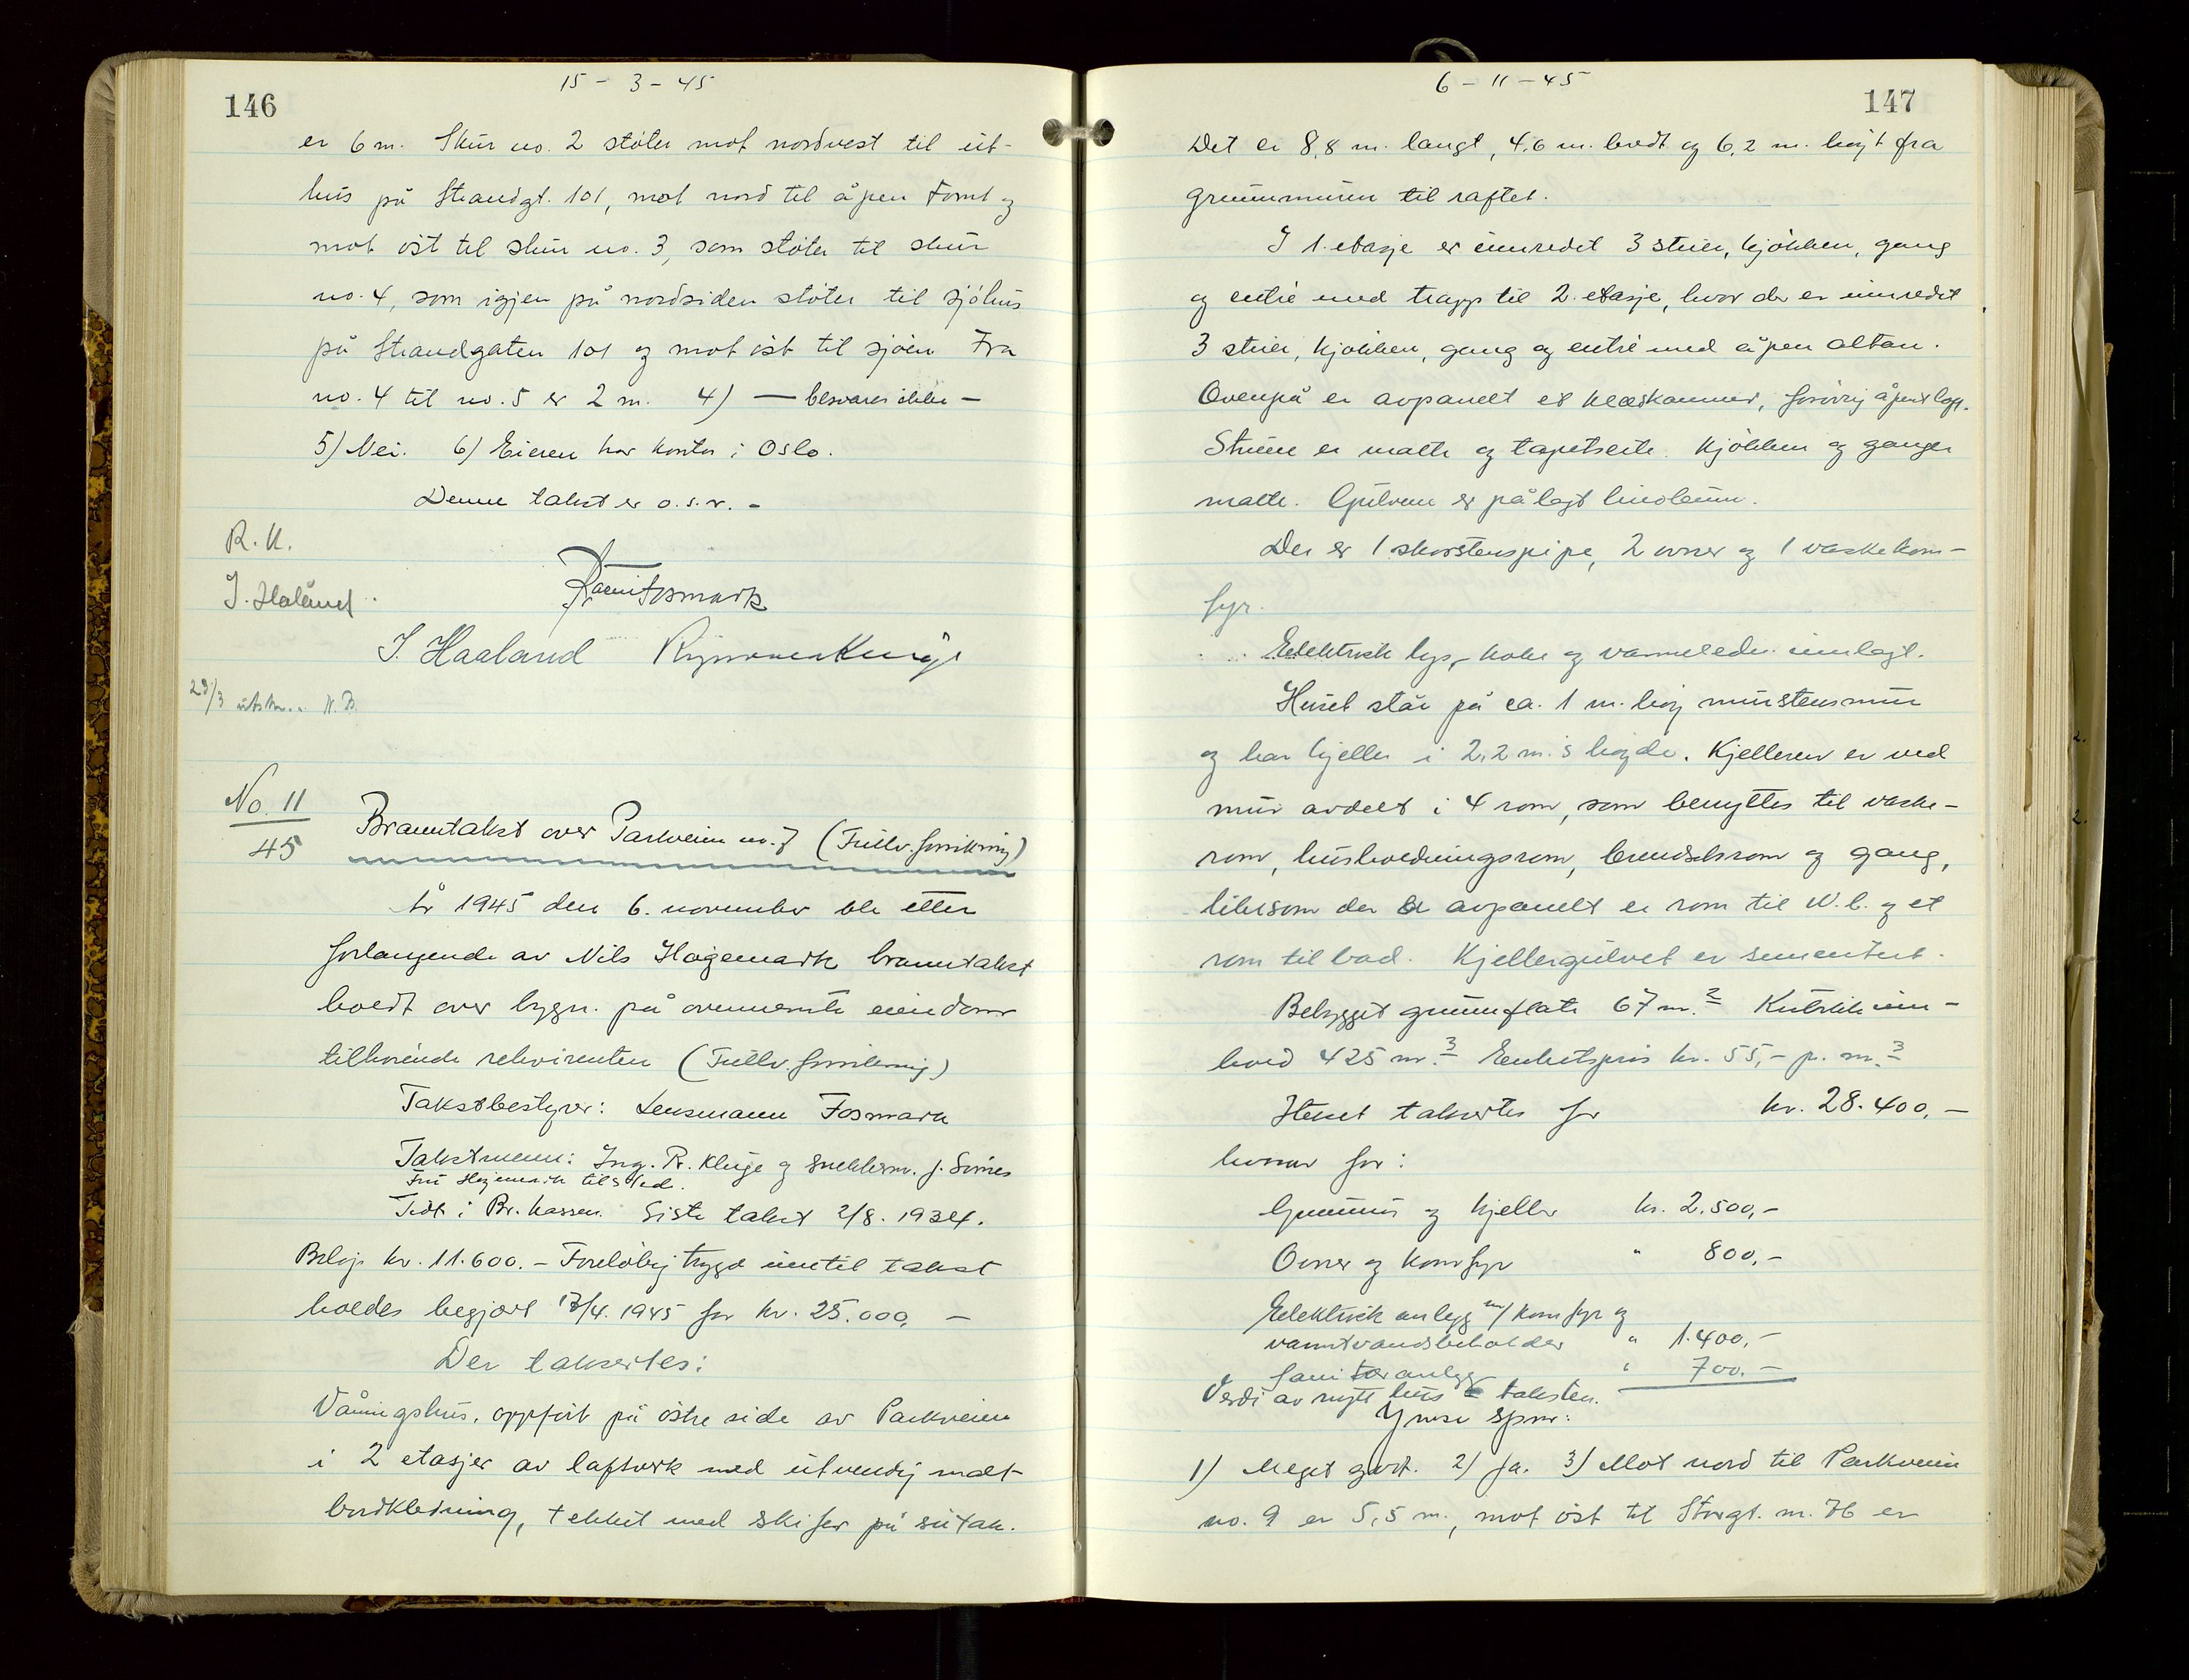 146
15 - 3 - 45
er 6 m. Skur no. 2 støter mot nordvest til ut-
hus på Strandgt. 101, mot nord til åpen tomt og
mot öst til skur no. 3, som støter til skur
no. 4, som igjen på nordsiden støter til sjöhus
på Strandgaten 101 og mot öst til sjöen Fra
no. 4 til no. 5 er 2 m. 4) — besvares ikke —
5) Nei. 6) Eieren har kontor i Oslo.
Denne takst er o.s.v. -
R. K.
J. Håland
Fosmark
J. Haaland
23/3 utskr. N. B.
No. 11
45
Branntakst over Parkveien no. 7 (Fullv. forsikring)
År 1945 den 6. november ble etter
forlangende av Nils Hagemark branntakst
holdt over bygn. på ovennevnte eiendom
tilhörende rekvirenten (Fullv. forsikring)
Takstbestyrer: Lensmann Fosmark
Takstmenn: Ing. R. Kluge og snekkerm. J. Sirnes
Fru Hagemark tilsted.
Tidt i Br. kassen. Siste takst 2/8. 1934.
Belöp kr. 11.600.- Foreløbig trygd inntil takst
holdes begjært 17/4. 1945 for kr. 25.000, -
Der takseres:
Våningshus, oppført på östre side av Parkveien
i 2 etasjer av laftverk med utvendig malt
bordkledning, tekket med skifer på sutak.
6 - 11 - 45
147
Det er 8,8 m. langt, 4,6 m. bredt og 6,2 m. høyt fra
grunnmuren til raftet.
I 1. etasje er innredet 3 stuer, kjökken, gang
og entré med trapp til 2. etasje, hvor der er innredet
3 stuer, kjökken, gang og entré med åpen altan.
Ovenpå er avpanelt et kleskammer, forövrig åpent loft.
Stuene er malte og tapetserte. Kjökken og ganger
malte. Gulvene er pålagt linoleum.
Der er 1 skorstenspipe, 2 ovner og 1 vaskekom-
fyr.
Elektrisk lys-, koke og varmeledn. innlagt.
Huset står på ca. 1 m. høy murstensmur
og har kjeller i 2,2 m.'s høyde. Kjelleren er ved
mur avdelt i 4 rom, som benyttes til vaske-
rom, husholdningsrom, brendselsrom og gang,
likesom der er avpanelt er rom til W.C. og et
rom til bad. Kjellergulvet er sementert.
Bebygget grunnflate 67 m.2 Kubikkinn-
hold 425 m.3 Enhetspris kr. 55,- p. m.3
Huset takseres for kr. 28.400, -
hvorav for:
Grunnmur og kjeller kr. 2.500,-
Ovner og komfyr " 800,-
Elektrisk anlegg m/ komfyr og
varmtvandsbeholder " 1.400,-
Sanitæranlegg " 700.-
Verdi av nytt hus = taksten.
Ymse spm:
1) Meget godt. 2) Ja. 3) Mot nord til Parkveien
no. 9 er 5,5 m., mot öst til Storgt. nr. 76 er